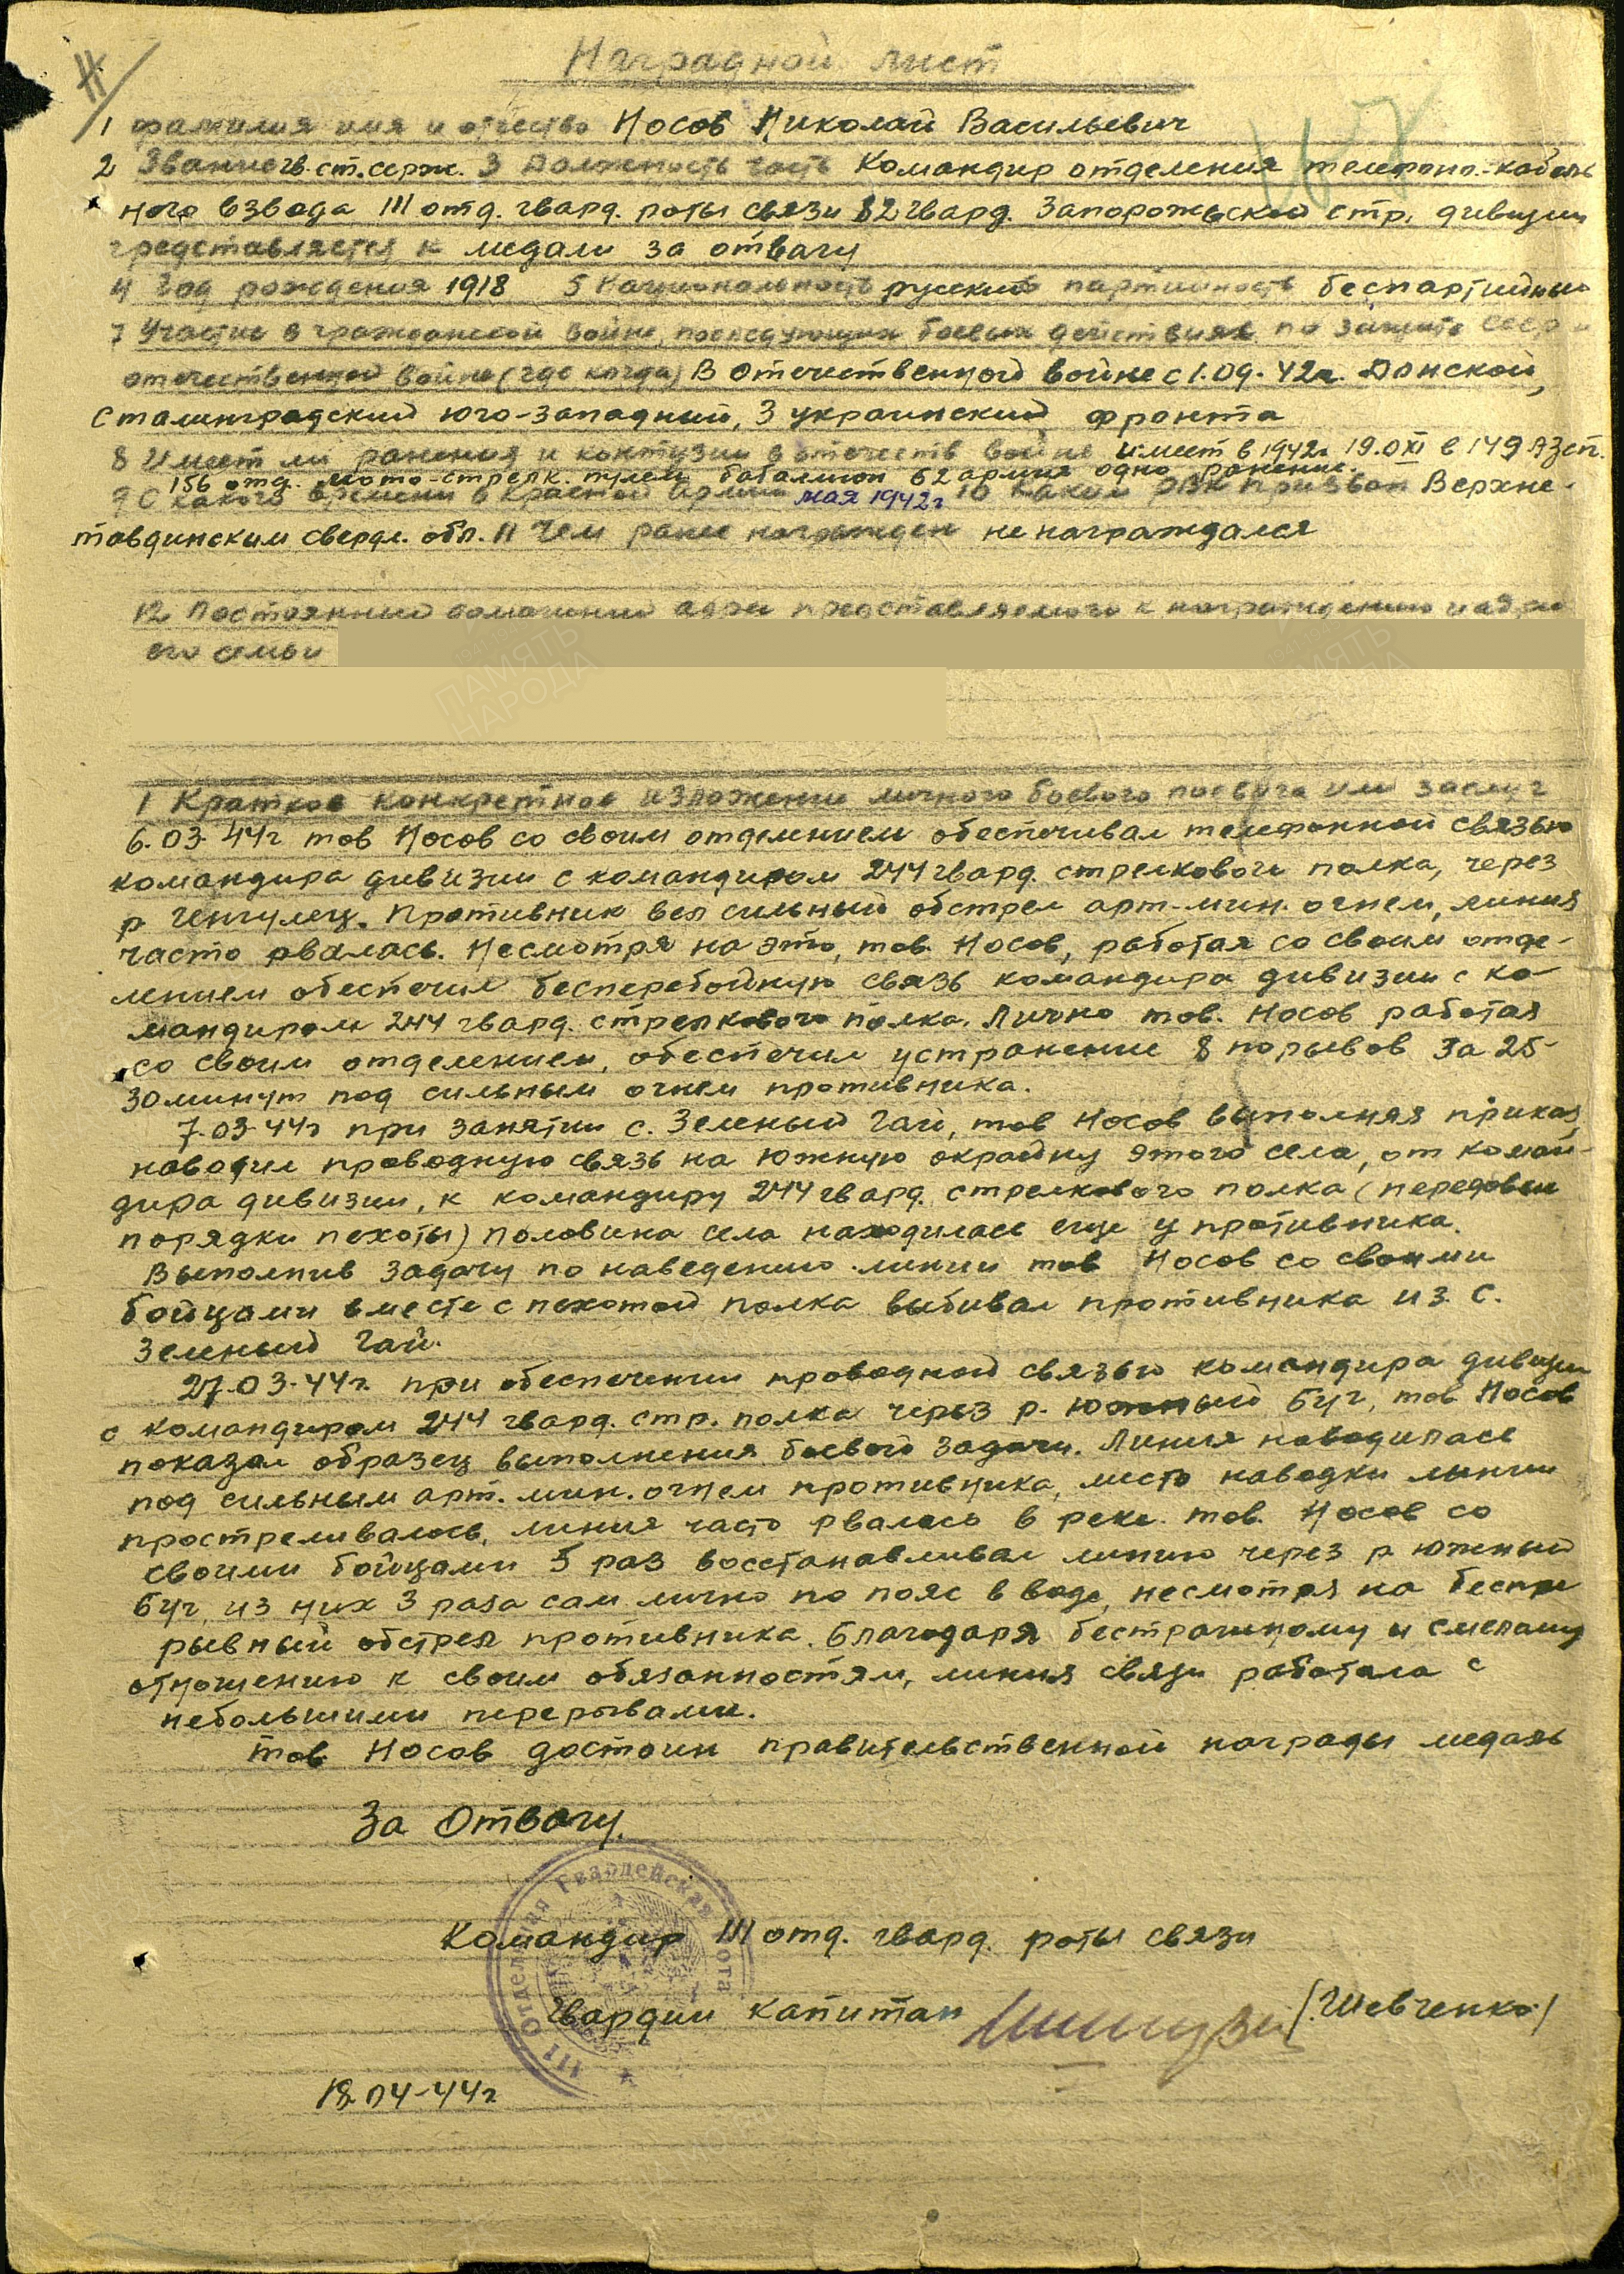 Н
Наградной лист
1 фамилия имя и отчество Носов Николай Васильевич
2 Звание гв. ст. серж. 3 Должность часть Командир отделения телефон.-кабель
ного взвода III отд. гвард. роты связи 82 гвард. Запорожьской стр. дивизии
представляется к медали за отвагу
4 Год рождения 1918 5 Национальность русский партийность беспартийный
7 Участие в гражданской войне, последующих боевых действиях по защите СССР и
отечественной войне (где когда) В Отечественной войне с 1.09.42г. Донской,
Сталинградский юго-западный, 3 украинский фронта
8 Имеет ли ранения и контузии в отечеств войне имеет в 1942г 19.XI в 149 АЗСП.
156 отд. мото-стрелк. пулем баталион 62 армия одно ранение.
9 С какого времени в Красной Армии мая 1942г 10 Каким РВК призван Верхне-
тавдинским свердл. обл. 11 Чем ранее награжден не награждался
12 Постоянный домашний адрес представляемого к награждению и адрес
его семьи
1 Краткое конкретное изложение личного боевого подвига или заслуг
6.03.44г тов Носов со своим отделением обеспечивал телефонной связью
командира дивизии с командиром 244 гвард. стрелкового полка, через
р Ингулец. Противник вел сильный обстрел арт-мин. огнем, линия
часто рвалась. Несмотря на это, тов. Носов, работая со своим отде-
лением обеспечил бесперебойную связь командира дивизии с ко-
мандиром 244 гвард. стрелкового полка. Лично тов. Носов работая
со своим отделением, обеспечил устранение 8 порывов за 25-
30 минут под сильным огнем противника.
7.03.44г при занятии с. Зеленый Гай, тов Носов выполняя приказ,
наводил проводную связь на южную окрайну этого села, от коман-
дира дивизии, к командиру 244 гвард. стрелкового полка (передовые
порядки пехоты) половина села находилась еще у противника.
Выполнив задачу по наведению линии тов Носов со своими
бойцами вместе с пехотой полка выбивал противника из с.
Зеленый Гай.
27.03.44г. при обеспечении проводной связью командира дивизии
с командиром 244 гвард. стр. полка через р. Южный Буг, тов Носов
показал образец выполнения боевой задачи. Линия наводилась
под сильным арт. мин. огнем противника, место наводки линии
простреливалось, линия часто рвалась в реке. тов. Носов со
своими бойцами 5 раз восстанавливал линию через р Южный
Буг, из них 3 раза сам лично по пояс в воде, несмотря на беспре
рывный обстрел противника. Благодаря бестрашному и смелому
отношению к своим обязанностям, линия связи работала с
небольшими перерывами.
тов. Носов достоин правительственной награды медаль
За Отвагу.
III Отдельная Гвардейская рота
Командир III отд. гвард. роты связи
гвардии капитан (Шевченко)
18.04-44г
ПАМЯТЬ
НАРОДА